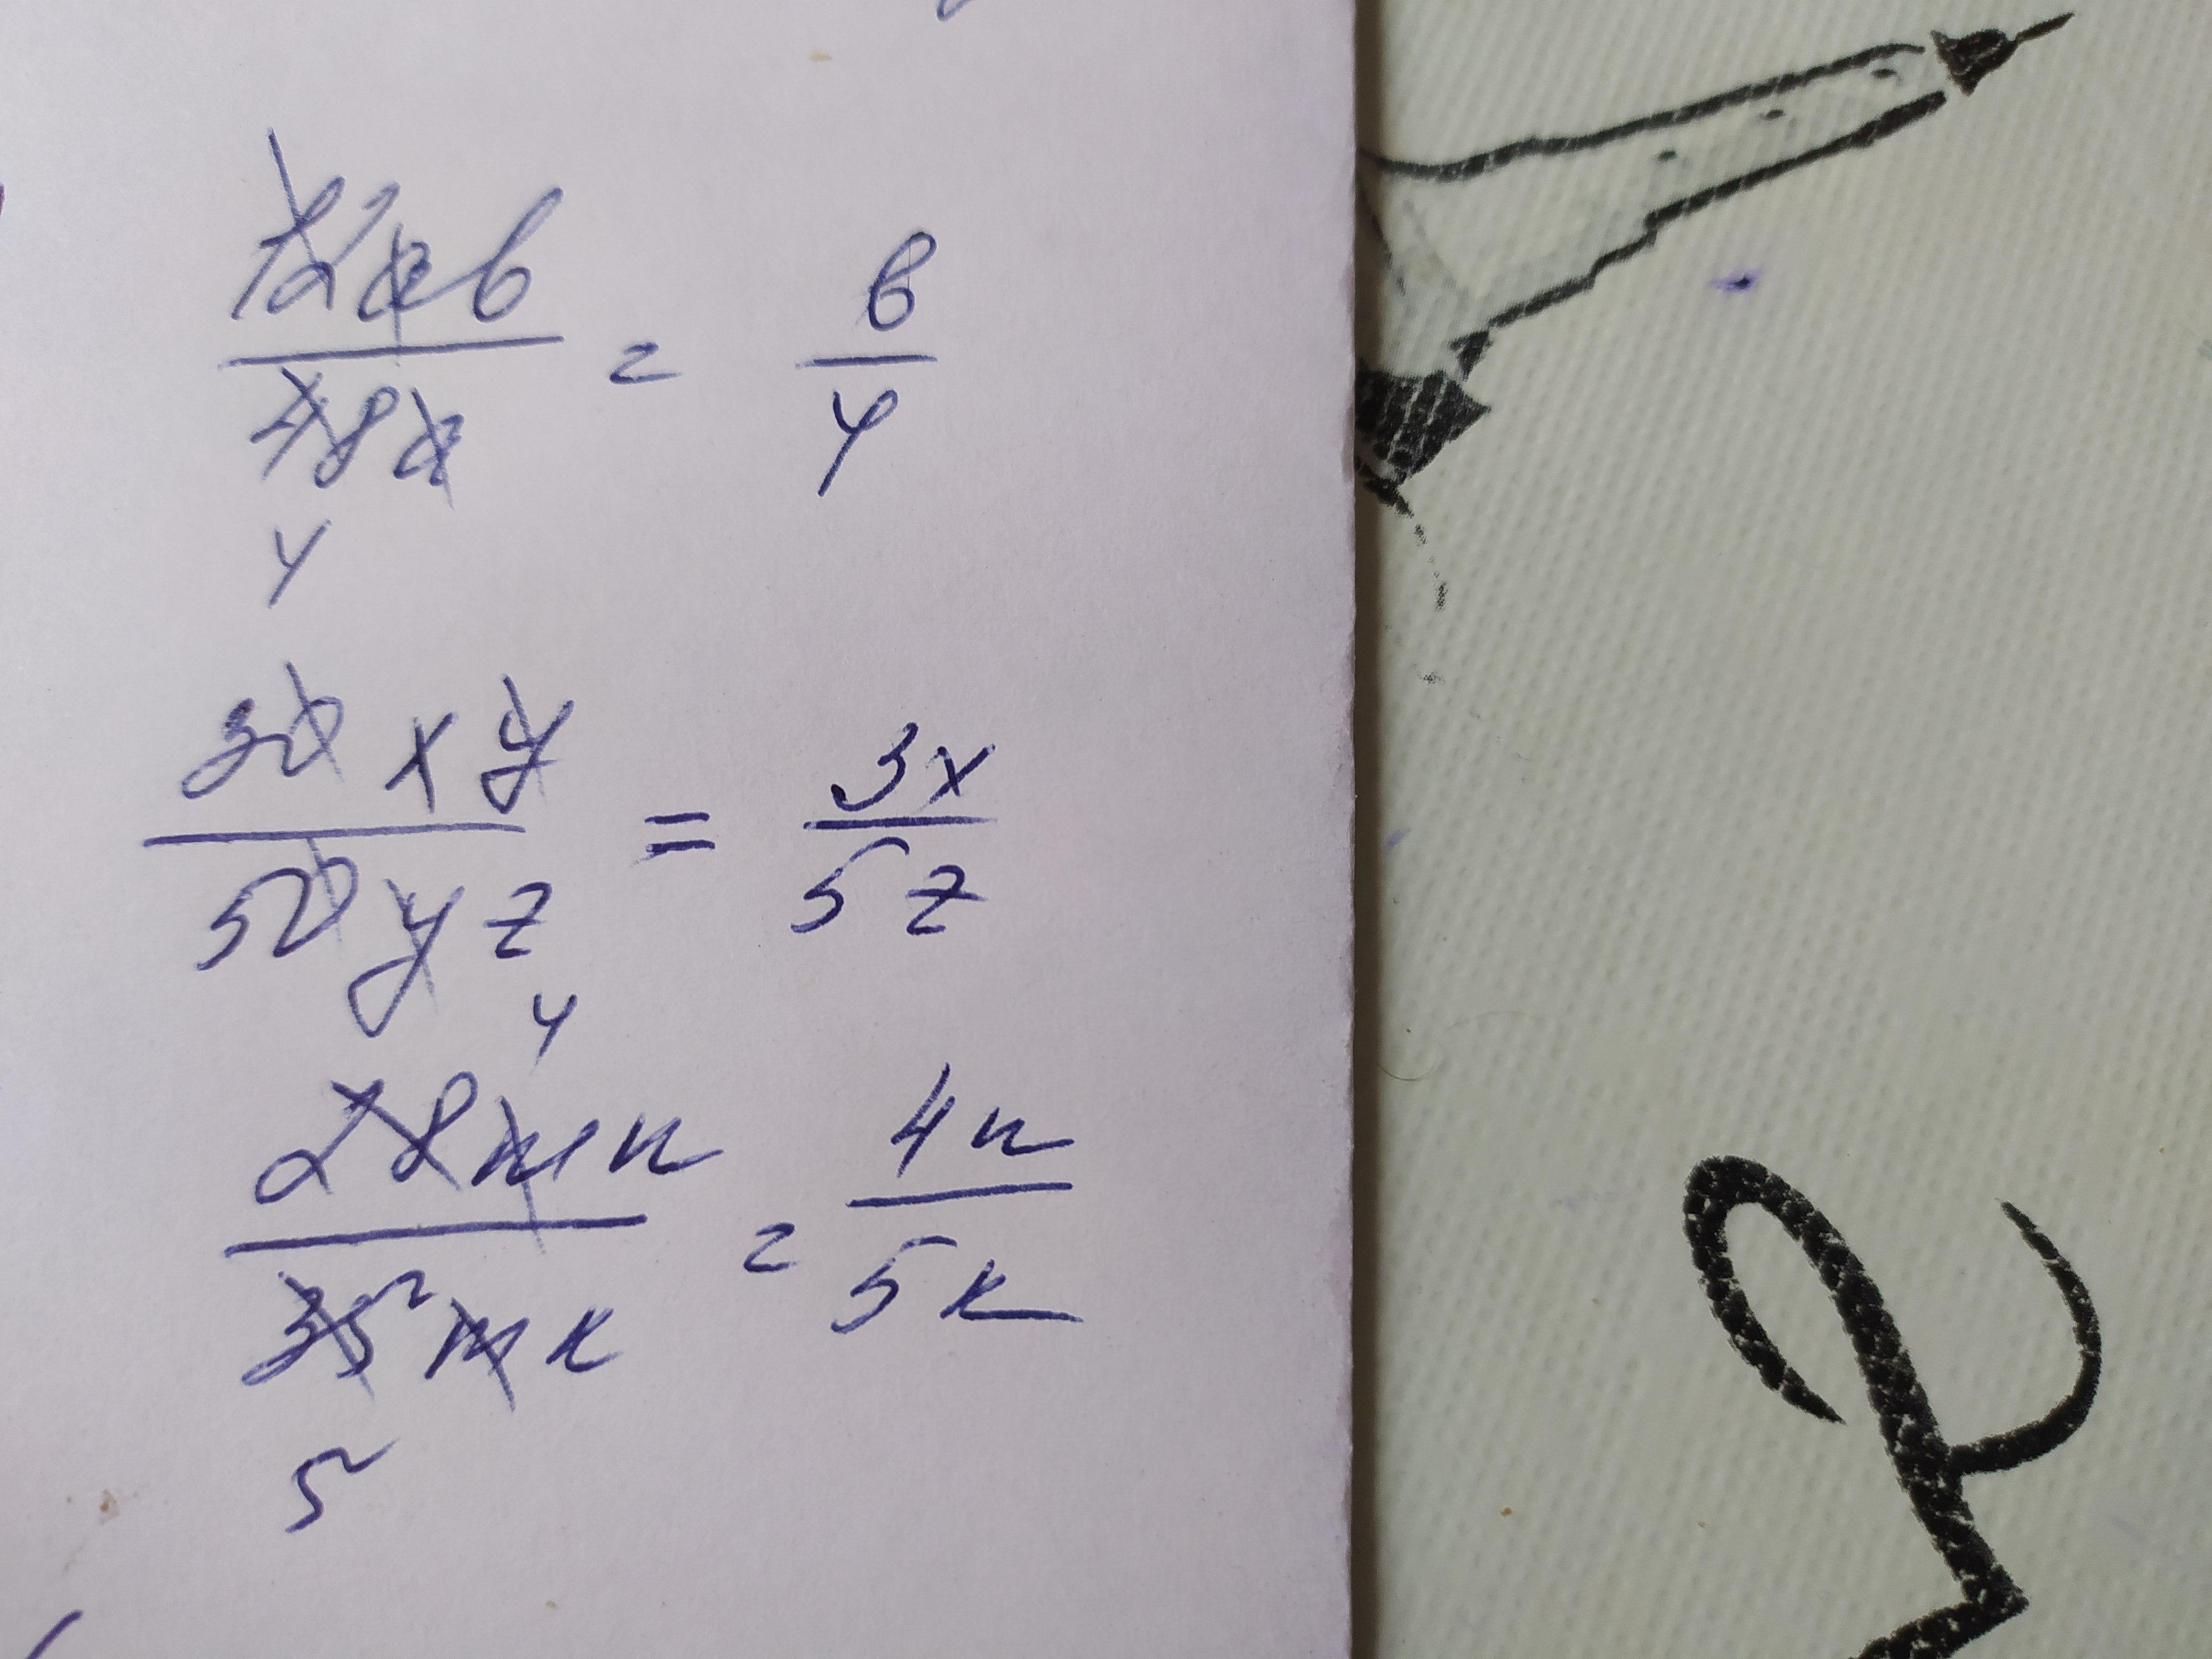 12ab/48a = b/4
4
30xy/50yz = 3x/5z
4
28mn/35mk = 4n/5k
5